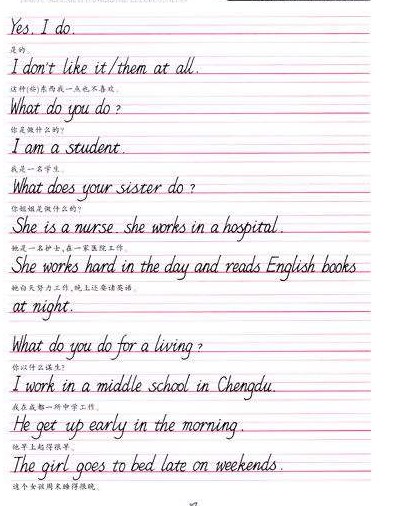 Yes. I do.
是的。
I don't like it/them at all.
这种(些)东西我一点也不喜欢。
What do you do?
你是做什么的?
I am a student.
我是一名学生。
What does your sister do?
你姐姐是做什么的?
She is a nurse. she works in a hospital.
她是一名护士,在一家医院工作。
She works hard in the day and reads English books
她白天努力工作,晚上还要读英语。
at night.
What do you do for a living?
你以什么谋生?
I work in a middle school in Chengdu.
我在成都一所中学工作。
He get up early in the morning.
他早上起得很早。
The girl goes to bed late on weekends.
这个女孩周末睡得很晚。